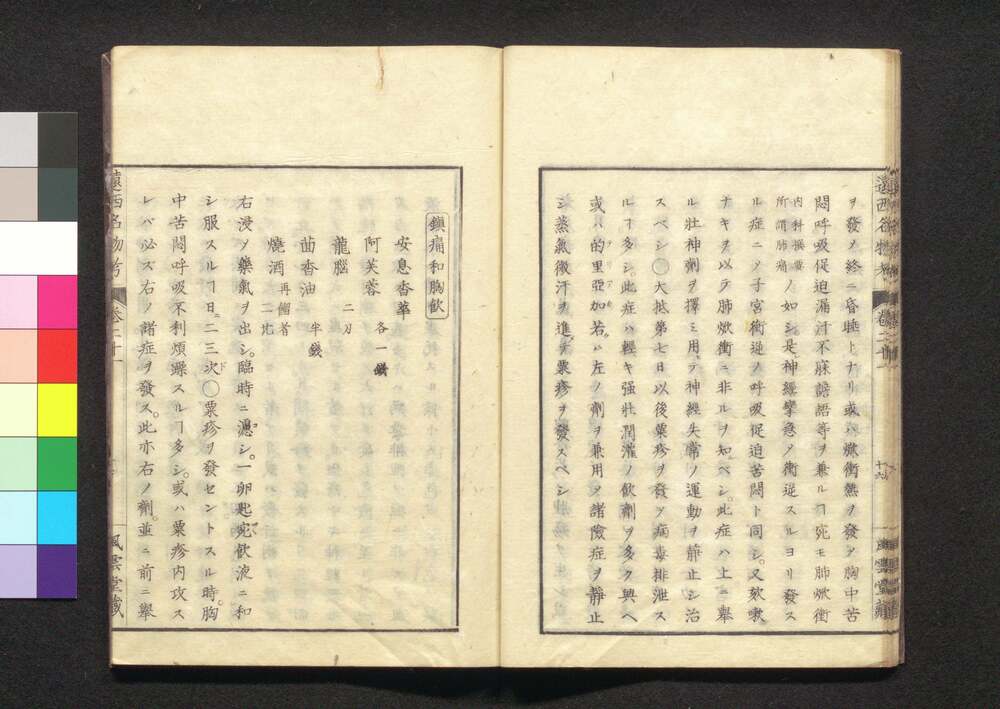 ヲ發シ終ニ昏睡トナリ或ハ焮衝熱ヲ發シ胸中苦
悶呼吸促迫漏汗不寐譫語等ヲ兼ルヿ宛モ肺焮衝
內科撰要
所謂肺痛
ノ如シ是神經攣急シ衝逆スルヨリ發ス
ル症ニシテ子宮衝逆ノ呼吸促迫苦悶ト同シ。又欬嗽
ナキヲ以テ肺焮衝ニ非ルヲ知ベシ。此症ハ上ニ舉
ル壯神劑ヲ擇ミ用テ神經失常ノ運動ヲ靜止シ治
スベシ〇大抵第七日以後粟疹ヲ發シ病毒排泄ス
ルヿ多シ。此症ハ輕キ強壯潤灌ノ飲劑ヲ多ク與ヘ
或ハ的里亞加若。ハ左ノ劑ヲ兼用シ諸險症ヲ靜止
シ蒸氣微汗ヲ進メ粟疹ヲ發スベシ
遠西名物考
卷二十
十六
風雲堂藏
鎮痛和胸飲
安息香華
阿芙蓉
各一錢
龍腦
二刃
茴香油
半錢
燒酒
再餾者
二比
右浸シ藥氣ヲ出シ。臨時ニ濾シ。一卵匙宛飲液ニ和
シ服スルヿ日ニ二三次〇粟疹ヲ發セントスル時。胸
中苦悶呼吸不利煩躁スルヿ多シ。或ハ粟疹内攻ス
レバ必ズ右ノ諸症ヲ發ス。此亦右ノ劑。並ニ前ニ舉
遠西名物考
卷二十
風雲堂藏